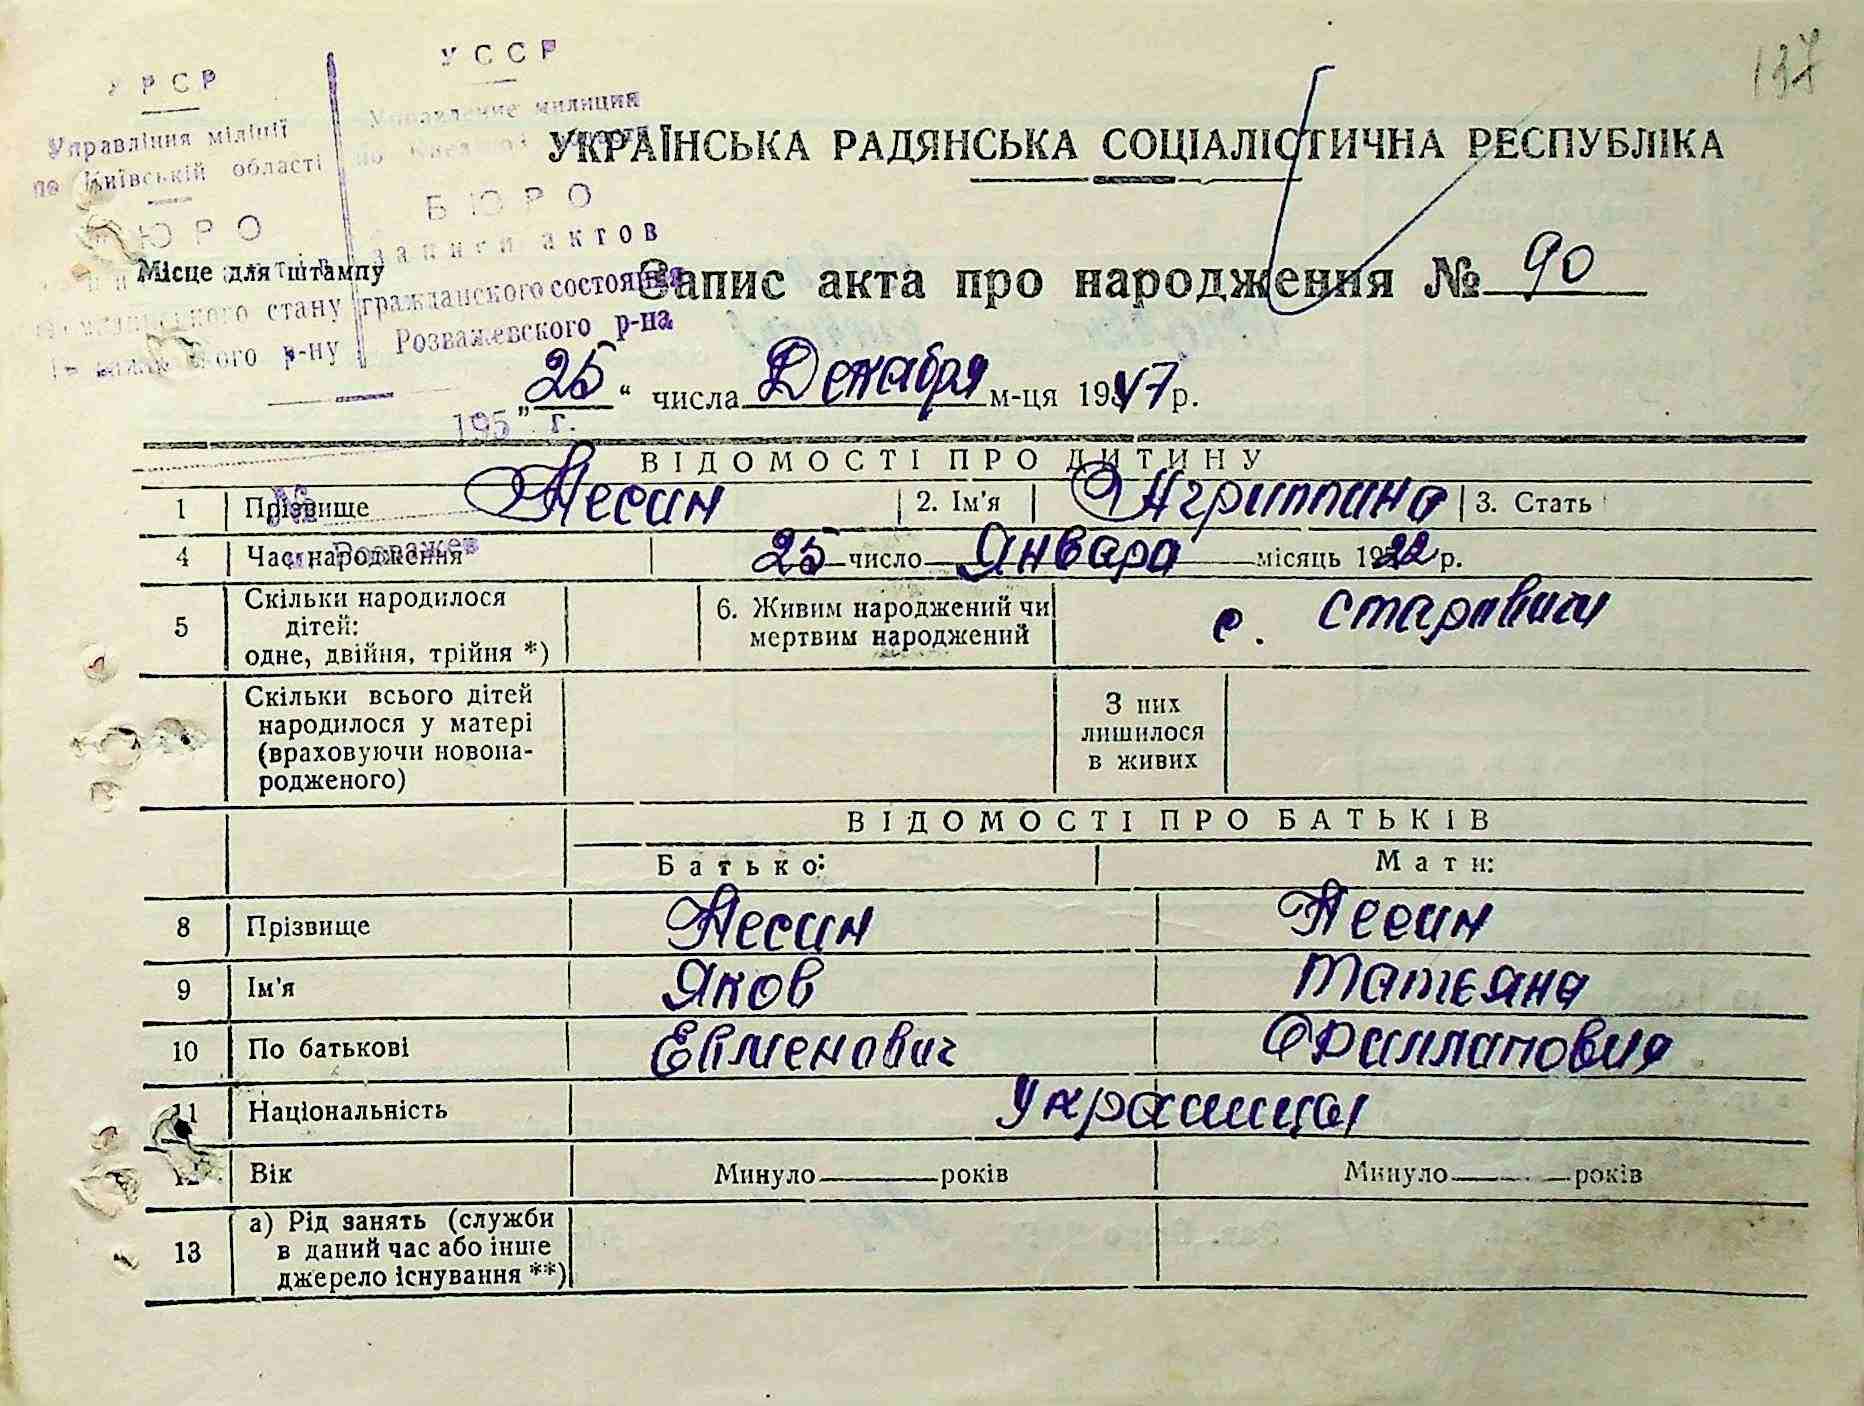 137
УРСР
Управління міліції
по Київській області
БЮРО
стану
р-ну
УССР
Управление милиции
БЮРО
записи актов
гражданского состояния
Розважевского р-на
195 " г.
№
Місце для штампу
УКРАЇНСЬКА РАДЯНСЬКА СОЦІАЛІСТИЧНА РЕСПУБЛІКА
Запис акта про народження № 90
"25" числа Декабря м-ця 1947 р.
ВІДОМОСТІ ПРО ДИТИНУ
1 Прізвище Несин 2. Ім'я Агриппина 3. Стать
4 Час народження 25 число Января місяць 1922 р.
5 Скільки народилося
дітей:
одне, двійня, трійня *)
6. Живим народжений чи
мертвим народжений
с. Старовичи
Скільки всього дітей
народилося у матері
(враховуючи новона-
родженого)
З них
лишилося
в живих
ВІДОМОСТІ ПРО БАТЬКІВ
Батько: Мати:
8 Прізвище Несин Несин
9 Ім'я Яков Татьяна
10 По батькові Евменович Филиповна
11 Національність Украинцы
12 Вік Минуло років Минуло років
13 а) Рід занять (служби
в даний час або інше
джерело існування **)